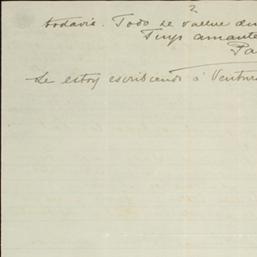 2
todavía. Todo se vuelve
Tuyo amante
Pa
Le estoy escribiendo á Ventur